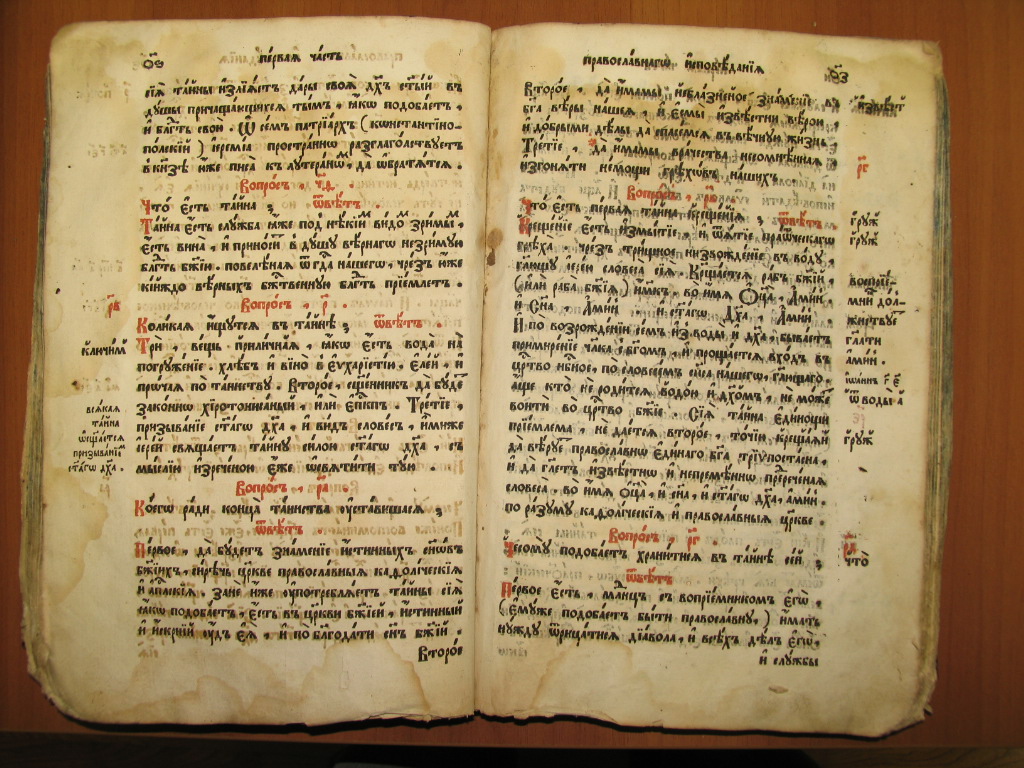 первая часть
сїѧ̀ та́йны и҆злїѧ́етъ да́ры своѧ̀ дх҃ъ ст҃ы́й въ
ду́шы причаща́ющихсѧ ты́мъ, ꙗ҆́кѡ подоба́етъ,
и҆ бл҃гть свою̀. Ѿ се́мъ патрїа́рхъ (кѡнстантїно-
полскїй) і҆еремі́а простра́ннѡ разглаго́лствуетъ
въ кни́зѣ ю҆́же писа̀ къ лу́тераномъ, да ѡ҆братѧ́тсѧ.
Вопро́съ, ч҃ѳ.
Что̀ є҆́сть та́йна ; ѿвѣ́тъ.
Та́йна є҆́сть слу́жба ꙗ҆́же под̾ нѣ́кїимъ ви́домъ зри́мымъ,
є҆́сть вина̀, и҆ прино́ситъ в̾ ду́шу вѣ́рнагѡ незри́мую
бл҃гть бж҃їю. повелѣ́нная ѿ гд҇а на́шегѡ, чре́зъ ю҆́же
кі́йждо вѣ́рныхъ бж҃твенную бл҃гть прїе́млетъ.
Вопро́съ, р҃.
Коли́каѧ и҆́щутсѧ въ та́йнѣ ; ѿвѣ́тъ.
Трѝ, ве́щь прили́чнаѧ, ꙗ҆́кѡ є҆́сть вода̀ на
погруже́нїе. хлѣ́бъ и҆ вїно̀ в̾ є҆ѵхарі́стїи. є҆ле́й, и҆
про́чаѧ по та́инству. Второ́е, сщ҃е́нникъ да бу́детъ
зако́ннѡ хїротониса́нный, и҆лѝ є҆пі́скпъ. Тре́тїе,
призыва́нїе ст҃а́гѡ дх҃а, и҆ ви́дъ слове́съ, и҆́миже
і҆ере́й свѧща́етъ та́йну си́лою ст҃а́гѡ дх҃а, съ
мы́слїю и҆зрече́ною є҆́же ѡ҆свѧти́ти тую̀.
Вопро́съ, р҃а.
Ко́егѡ ра́ди конца̀ та́инства оу҆ста́вишасѧ ;
ѿвѣ́тъ
Пе́рвое, да бу́детъ зна́менїе и҆́стинныхъ сн҃ѡ́въ
бж҃їихъ, си́рѣчь цр҃кве правосла́вныѧ каѳоли́ческїѧ
и҆ а҆пⷭ҇скїѧ. Занѐ и҆́же оу҆потреблѧ́етъ та́йны сїѧ̀
ꙗ҆́кѡ подоба́етъ, є҆́сть въ цр҃кви бж҃їей, и҆́стинный
и҆ и҆́скрнїй оу҆́дъ є҆ѧ̀, и҆ по бл҃года́ти сн҃ъ бж҃їй.
Второ́е
р҃в
кличи́мъ
всѧ́каѧ
та́йна
ѡ҆сщ҃а́етсѧ
призыва́нїемъ
ст҃а́гѡ дх҃а.
правосла́внагѡ и҆сповѣ́данїѧ
Второ́е, да и҆́мамы неблазне́ное зна́менїе въ
бг҃а вѣ́ры на́шеѧ, и҆ є҆смы̀ и҆звѣ́стни вѣ́рою,
и҆ до́брыми дѣ́лы да спасе́мсѧ въ вѣ́чную жи́знь.
Тре́тїе, да и҆́мамы врачества̀ несомнѣ́ннаѧ
и҆згонѧ́ти не́мощи грѣхѡ́въ на́шихъ.
Вопро́съ, р҃в.
Что̀ є҆́сть пе́рваѧ та́йна креще́нїѧ ; ѿвѣ́тъ.
Креще́нїе є҆́сть и҆змы́тїе, и҆ ѿѧ́тїе праѻ҆те́ческагѡ
грѣха̀. чрез̾ три́щное низвожде́нїе въ во́ду,
гл҃ющу і҆ере́ю словеса̀ сїѧ̀. Крща́етсѧ ра́бъ бж҃їй,
(и҆лѝ раба̀ бж҃їѧ) и҆́мкъ. во и҆́мѧ Ѻц҃а, А҆ми́нь.
и҆ Сн҃а, А҆ми́нь. и҆ ст҃а́гѡ Дх҃а, А҆ми́нь.
И҆ по возрожде́нїи се́мъ и҆з̾ воды̀ и҆ дх҃а, быва́етъ
примире́нїе чл҃ка с̾ бг҃омъ, и҆ проща́етсѧ вхо́дъ въ
цр҇тво нб҇ное, по словесе́мъ сп҃са на́шегѡ, гл҃ющагѡ.
а҆́ще кто̀ не роди́тсѧ водо́ю и҆ дх҃омъ, не мо́жетъ
вни́ти во цр҇тво бж҃їе. Сїѧ̀ та́йна є҆ди́ною
прїе́млема, не дае́тсѧ второ́е, то́чїю креща́ѧй
да вѣ́руетъ правосла́внѡ є҆ди́наго бг҃а трїѵпоста́сна,
и҆ да гл҃етъ и҆звѣ́стнѡ и҆ непремѣ́ннѡ пререче́наѧ
словеса̀. во и҆́мѧ ѻц҃а, и҆ сн҃а, и҆ ст҃а́гѡ дх҃а, а҆ми́нь.
по ра́зуму каѳоли́ческїѧ и҆ правосла́вныѧ цр҃кве.
Вопро́съ, р҃г.
Чесому̀ подоба́етъ храни́тисѧ въ та́йнѣ се́й ;
ѿвѣ́тъ
Пе́рвое є҆́сть, мл҃нцъ съ воспрїе́мникомъ є҆гѡ̀,
(є҆му́же подоба́етъ бы́ти правосла́вну,) и҆́мать
ну́жду ѿрица́тисѧ дїа́вола, и҆ всѣ́хъ дѣ́лъ є҆гѡ̀,
и҆ слу́жбы
и҆звѣ́ст
р҃г
гру́ж
гру́ж
воспрїе́-
мни дол-
же́ствует
гл҃ати
а҆ми́нь.
і҆ѡа́нн г҃ є҃
ѿ воды̀
гру́ж
что̀